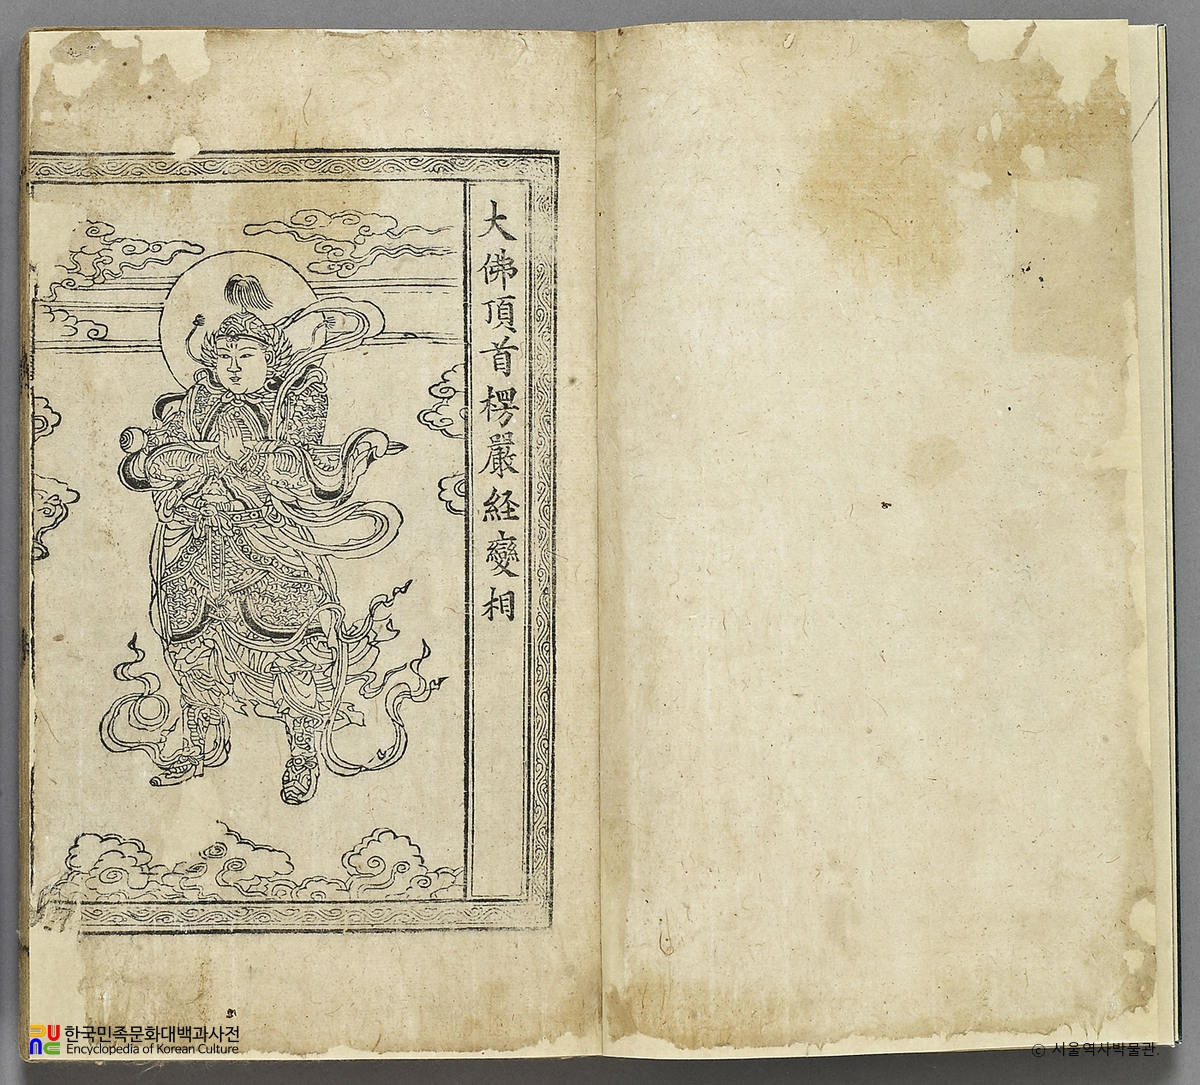 大佛頂首楞嚴経變相
한국민족문화대백과사전
Encyclopedia of Korean Culture
ⓒ 서울역사박물관.